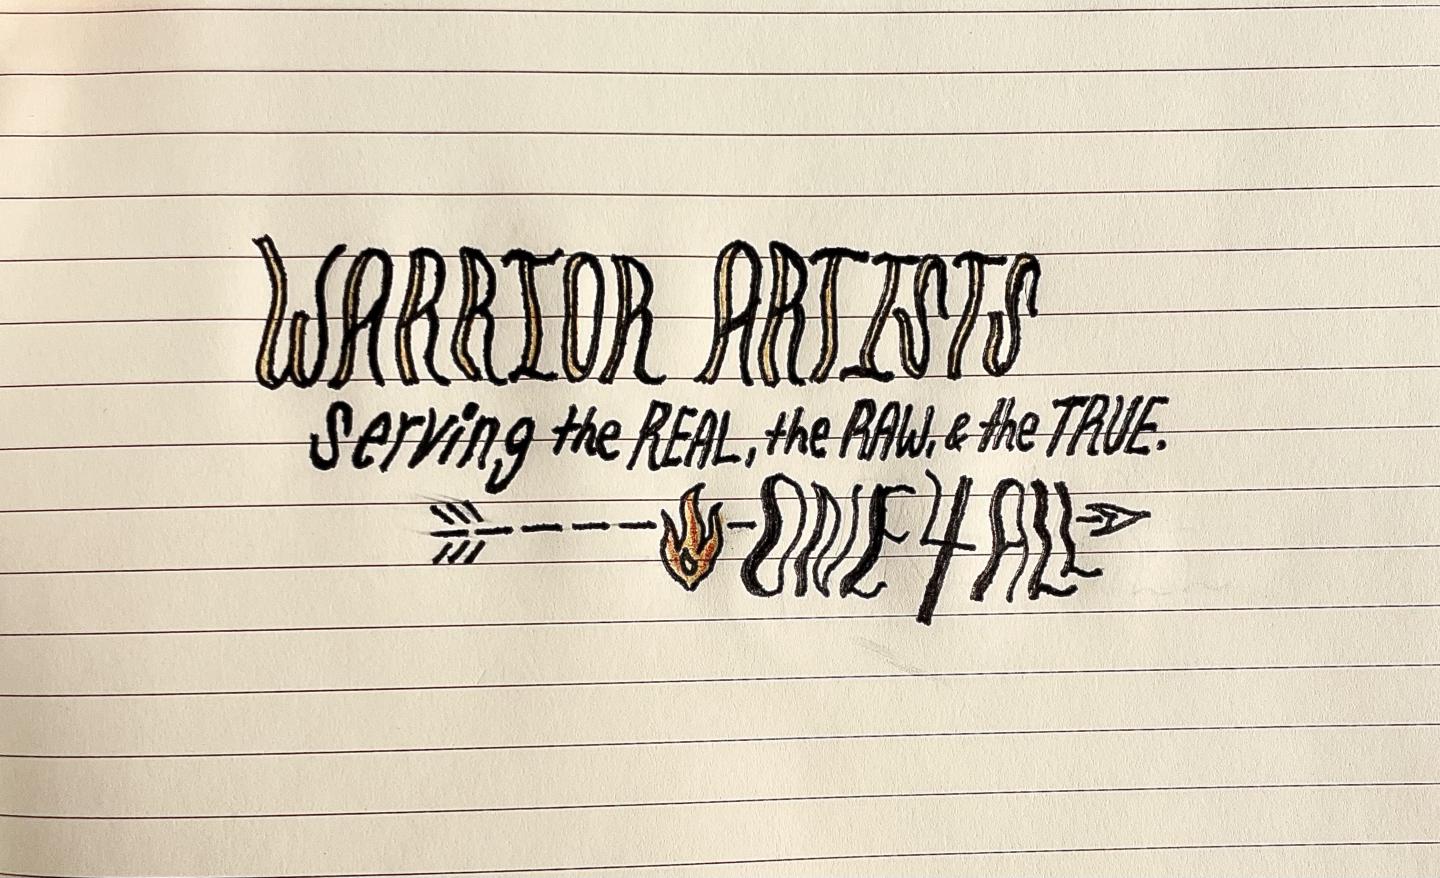 WARRIOR ARTISTS
serving the REAL, the RAW, & the TRUE.
ONE 4 ALL